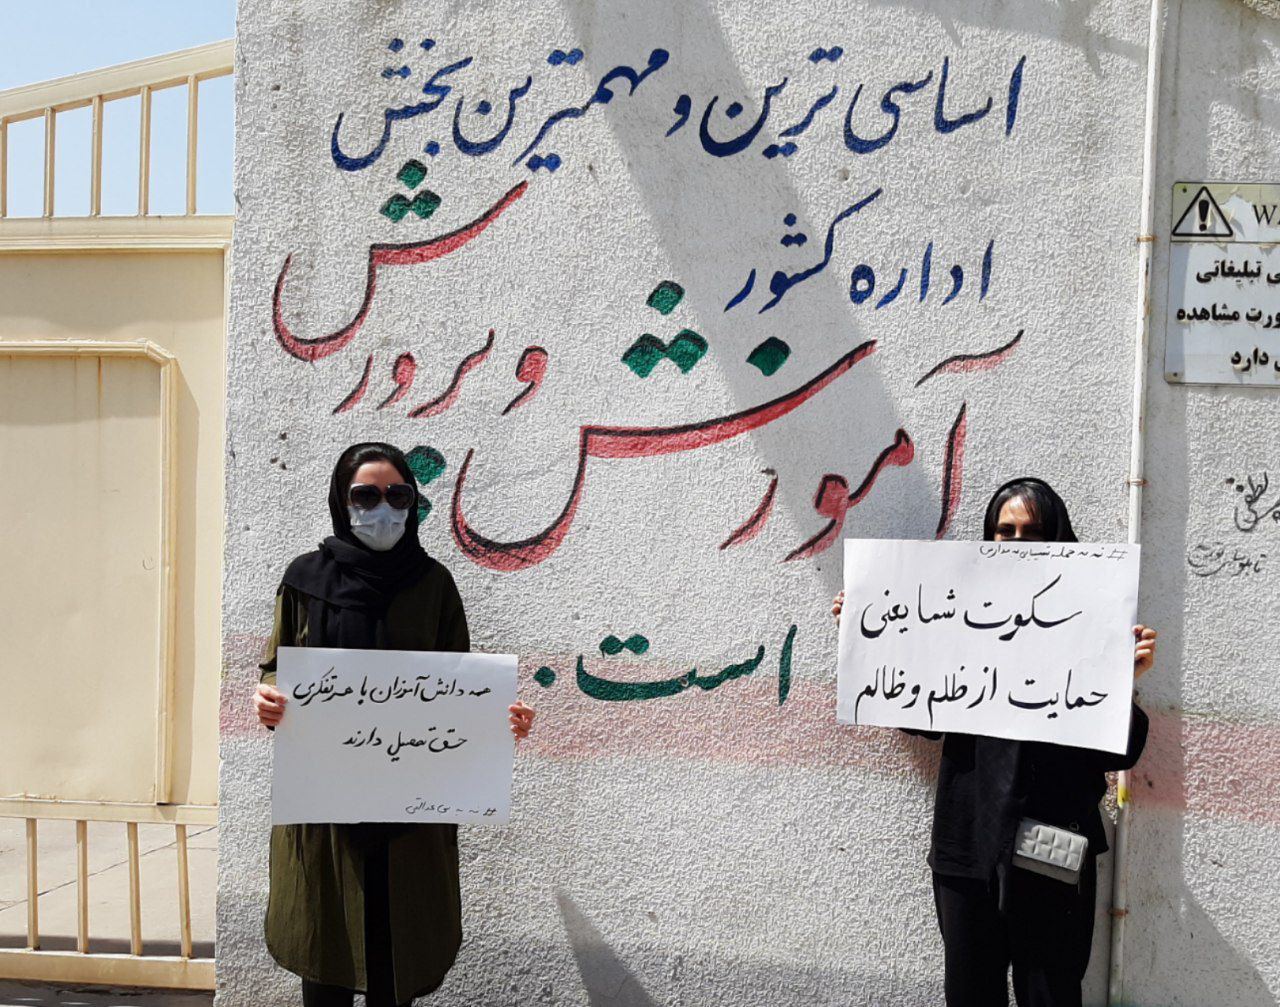 اساسی ترین و مهمترین بخش
اداره کشور
آموزش و پرورش
است.
W
ی تبلیغاتی
ورت مشاهده
دارد
لطفی
# نه به حمله شیمیایی به مدارس
سکوت شما یعنی
حمایت از ظلم و ظالم
همه دانش آموزان با هر تفکری
حق تحصیل دارند
# نه به بی عدالتی